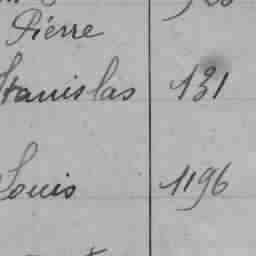 Pierre
Stanislas 131
Louis 1196